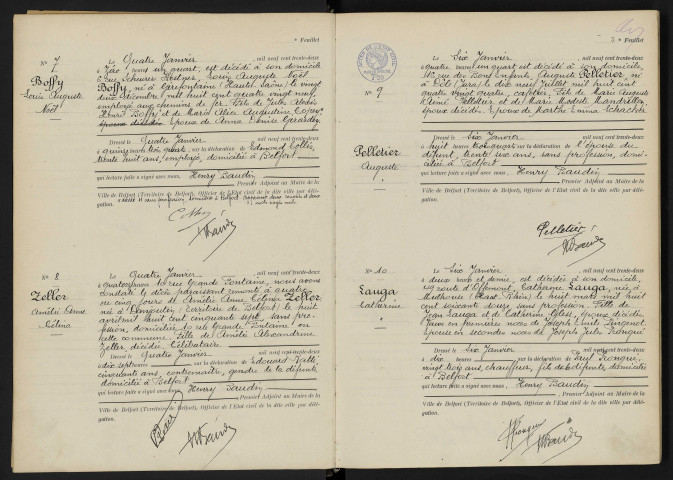 * Feuillet
N° 7
Boffy
Louis Auguste
Noël
Le Quatre Janvier, mil neuf cent trente-deux
à zéro heures un quart, est décédé à son domicile
Louis Auguste Noël
Boffy, né à (Haute Saône) le vingt
cinq décembre mil huit cent quatre vingt neuf,
employé aux chemins de fer. Fils de Jules
Boffy et de Marie Augustine
Epoux de Anna
Dressé le Quatre Janvier
à quinze heures un quart, sur la déclaration de Edmond
trente huit ans, employé, domicilié à Belfort
qui lecture faite a signé avec nous, Henry Baudin
Premier Adjoint au Maire de la
Ville de Belfort (Territoire de Belfort), Officier de l'Etat civil de la dite ville par délé-
gation.
N° 8
Zeller
Amélie Anne
Célina
Le Quatre Janvier, mil neuf cent trente-deux
à quatorze heures, 10 rue Grande Fontaine, nous avons
constaté le décès paraissant remonté à quatre
ou cinq jours de Amélie Anne Célina Zeller
née à (territoire de Belfort) le huit
avril mil huit cent cinquante sept, sans pro-
fession, domiciliée 10 rue Grande Fontaine en
cette commune. Fille de Amélie Alexandrine
Zeller décédée. Célibataire
Dressé le Quatre Janvier
à dix sept heures sur la déclaration de Edouard
cinquante ans, gendre de la défunte,
domicilié à Belfort
qui lecture faite a signé avec nous, Henry Baudin
Premier Adjoint au Maire de la
Ville de Belfort (Territoire de Belfort), Officier de l'Etat civil de la dite ville par délé-
gation.
3 * Feuillet
N° 9
Pelletier
Auguste
Le Six Janvier, mil neuf cent trente-deux
à quatre heures un quart est décédé à son domicile,
rue des Bons Enfants, Auguste Pelletier, né
à Dôle (Jura) le dix neuf Juillet mil huit cent
quatre vingt quatre, cafetier, Fils de Marie Auguste
Aimé Pelletier et de Marie Modeste Mandrillon,
époux décédés. Epoux de Marthe Emma Schacher
Dressé le Six Janvier
à huit heures trois quarts sur la déclaration de l'épouse du
défunt, trente six ans, sans profession, domi-
ciliée à Belfort
qui lecture faite a signé avec nous, Henry Baudin
Premier Adjoint au Maire de la
Ville de Belfort (Territoire de Belfort), Officier de l'Etat civil de la dite ville par délé-
gation.
Pelletier
N° 10
Lauga
Catherine
Le Six Janvier, mil neuf cent trente-deux
à deux heures et demie, est décédée à son domicile,
route d'Offemont, Catherine Lauga, née à
Mulhouse (Haut-Rhin) le huit mars mil huit
cent soixante douze, sans profession. Fille de
Jean Lauga et de Catherine, époux décédés.
Veuve en premières noces de Joseph Emile
Epouse en secondes noces de Joseph Jules
Dressé le Six Janvier
à dix heures sur la déclaration de Paul
vingt trois ans, chauffeur, fils de la défunte, domicilié
à Belfort
qui lecture faite a signé avec nous, Henry Baudin
Premier Adjoint au Maire de la
Ville de Belfort (Territoire de Belfort), Officier de l'Etat civil de la dite ville par délé-
gation.